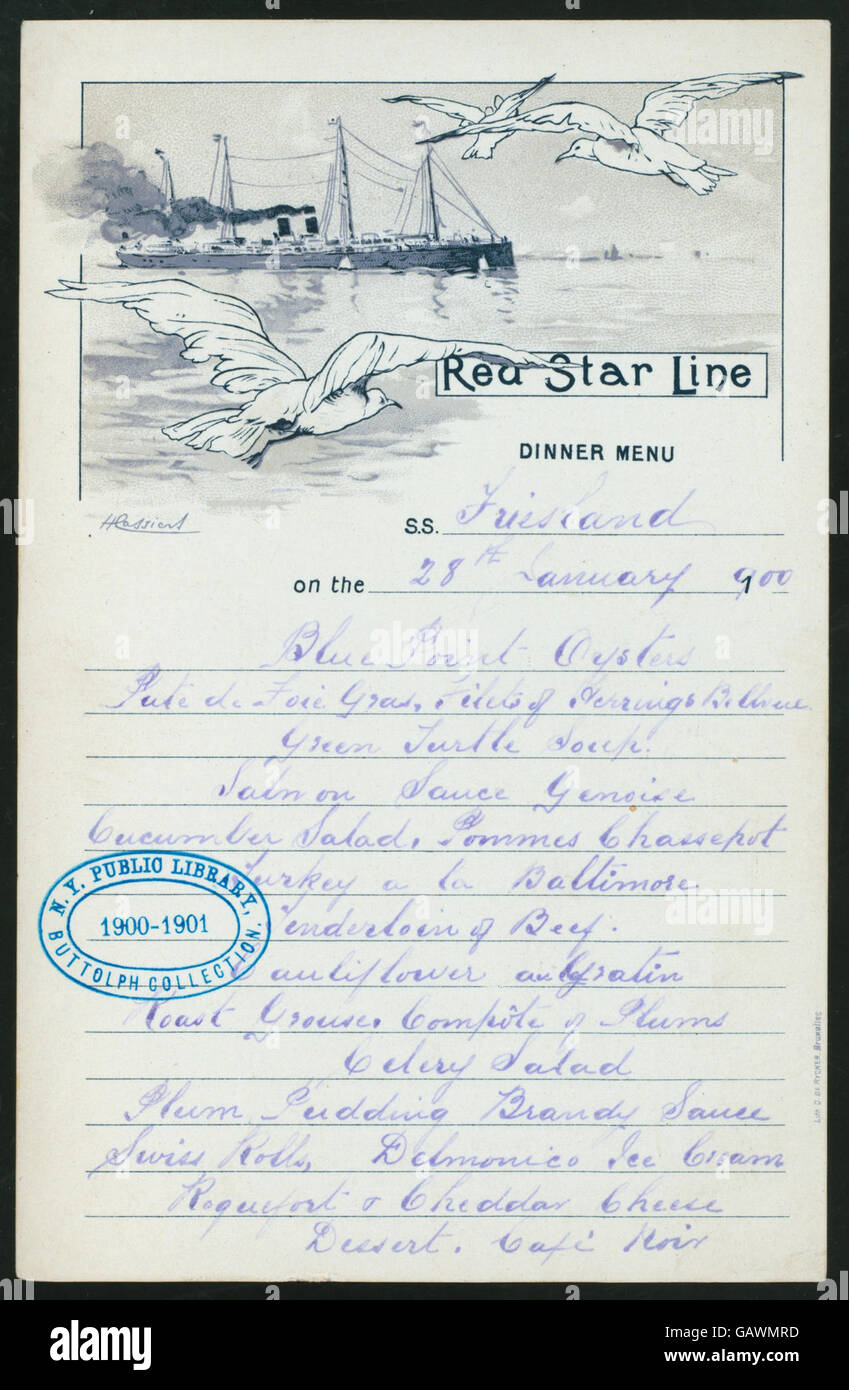 Red Star Line
DINNER MENU
H Cassiers
S.S. Friesland
on the 28th January 1900
Blue Point Oysters
Pate de Foie Gras, Filets of Herrings Bellevue
Green Turtle Soup.
Salmon Sauce Genoise
Cucumber Salad, Pommes Chassepot
Turkey a la Baltimore
Tenderloin of Beef.
Cauliflower au Gratin
Roast Grouse, Compôte of Plums
Celery Salad
Plum Pudding Brandy Sauce
Swiss Rolls, Delmonico Ice Cream
Roquefort & Cheddar Cheese
Dessert. Café Noir
N.Y. PUBLIC LIBRARY,
1900-1901
BUTTOLPH COLLECTION.
Lith. O. DE RYCKER, Bruxelles
alamy
alamy
Image ID: GAWMRD
www.alamy.com